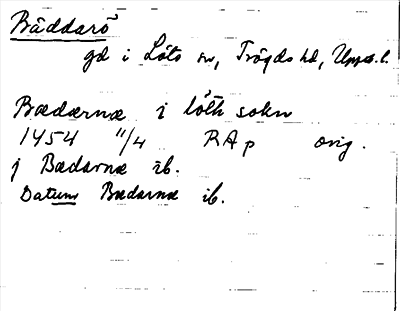 Bäddarö
gd i Löts sn, Trögds hd, Upps. l.
Bædærnæ i löth sokn
1454 11/4 RAp orig.
j Bædarnæ ib.
Datum Bædarnæ ib.